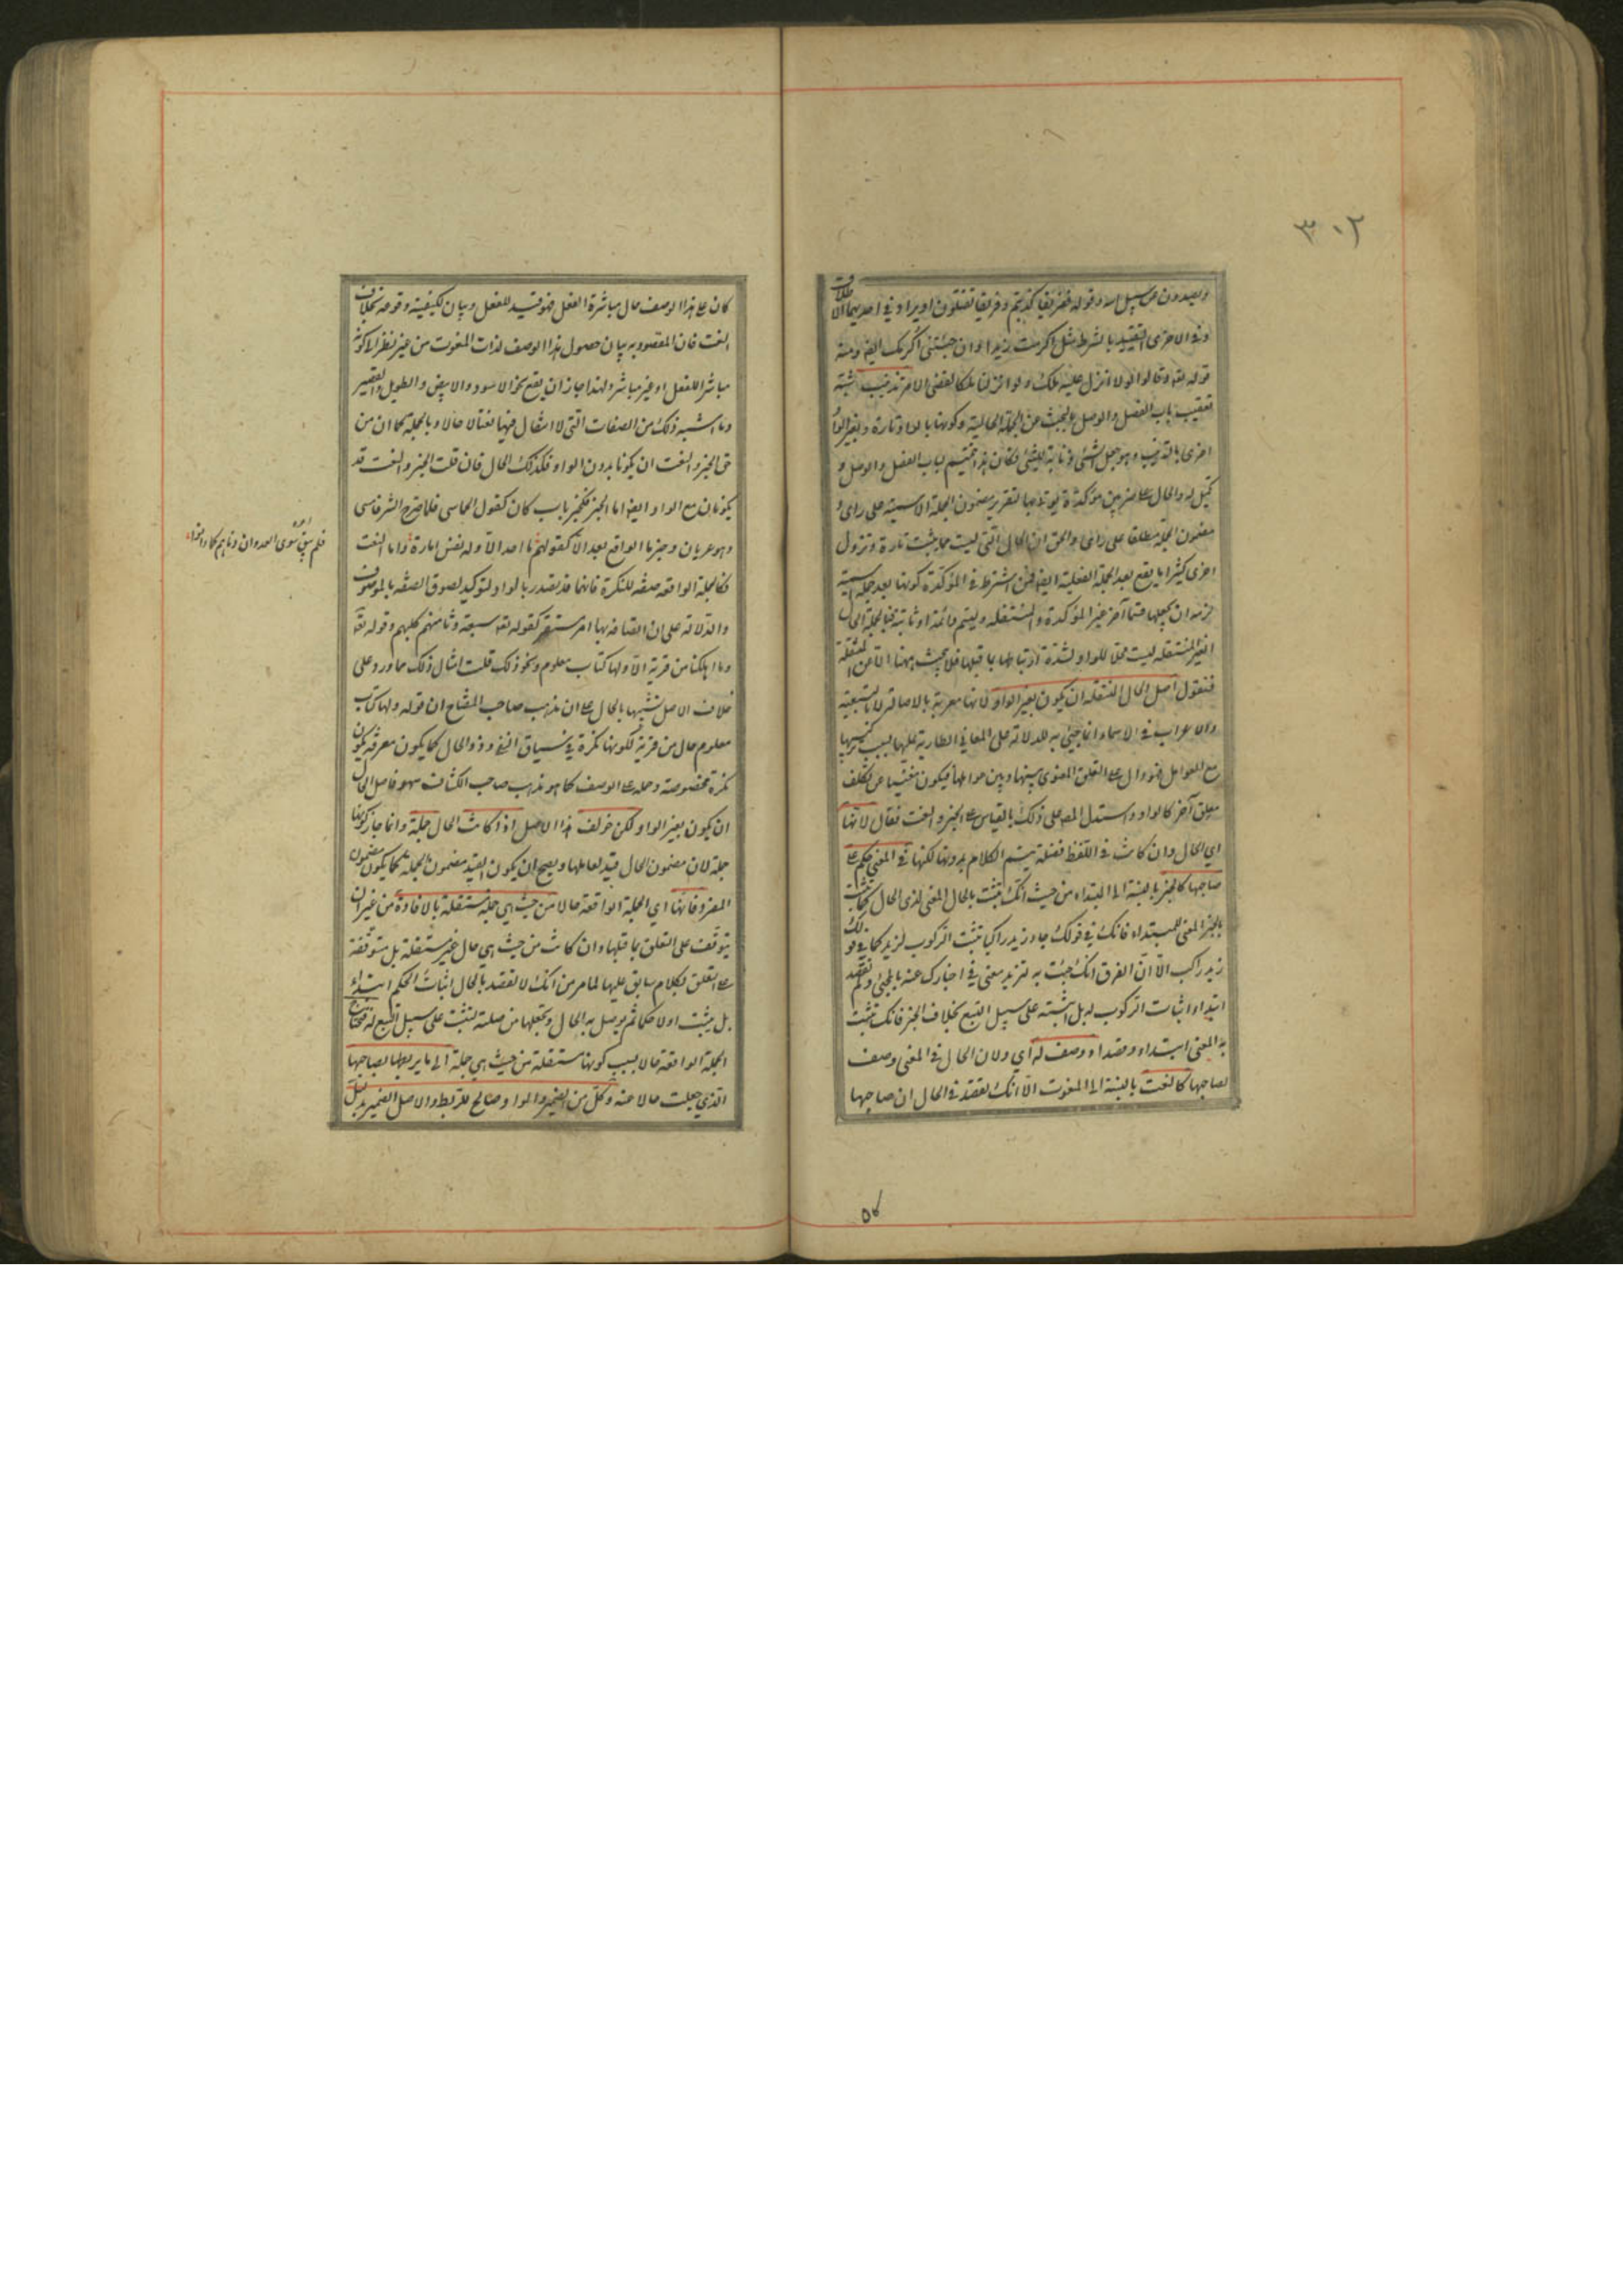 ٣٠٢
ويصدون عن سبيل الله وقوله ففريقا كذبتم وفريقا تقتلون او يراد في احديهما الاطلاق
وفي الاخرى التقييد بالشرط مثل اكرمت زيدا وان جئتنى اكرمك ايضا ومنه
قوله تعالى وقالوا لولا انزل عليه ملك ولو انزلنا ملكا لقضى الامر تذنيب شبه
تعقيب باب الفصل والوصل بالبحث عن الجملة الحالية وكونها بالواو تارة وبغير الواو
اخرى بالتذنيب وهو جعل الشئ ذنابة للشئ فكان هذا تتميم لباب الفصل والوصل و
تكميل له والحال على ضربين مؤكدة يؤتى بها لتقرير مضمون الجملة الاسمية على راى و
مضمون الجملة مطلقا على راى والحق ان الحال التى ليست مما يثبت تارة ويزول
اخرى كثيرا ما يقع بعد الجملة الفعلية ايضا فمن اشترط في المؤكدة كونها بعد جملة اسمية
لزمه ان يجعلها قسما آخر غير المؤكدة والمنتقلة وليسم دائمة او ثابتة فبالجملة الحال
الغير المنتقلة ليست محلا للواو لشدة ارتباطها بما قبلها فلا يبحث ههنا الا عن المنتقلة
فنقول اصل الحال المنتقلة ان يكون بغير الواو لانها معربة بالاصالة لا بالتبعية
والاعراب في الاسماء انما جئ به للدلالة على المعاني الطارية عليها بسبب تركيبها
مع العوامل فهو دال على التعلق المعنوى بينها وبين عواملها فيكون مغنيا عن تكلف
معلق آخر كالواو واستدل المص على ذلك بالقياس على الخبر والنعت فقال لانها
اي الحال وان كانت في اللفظ فضلة يتم الكلام بدونها لكنها في المعنى حكم على
صاحبها كالخبر بالنسبة الى المبتداء من حيث انك تثبت بالحال المعنى لذى الحال كما تثبت
بالخبر المعنى للمبتداء فانك في قولك جاء زيد راكبا تثبت الركوب لزيد كما في قولك
زيد راكب الا ان الفرق انك جئت به لتزيد معنى في اخبارك عنه بالمجئ ولم تقصد
ابتداء اثبات الركوب له بل اثبته على سبيل التبع بخلاف الخبر فانك تثبت
به المعنى ابتداء وقصدا ووصف له اي ولان الحال في المعنى وصف
لصاحبها كالنعت بالنسبة الى المنعوت الا انك تقصد في الحال ان صاحبها
كان على هذا الوصف حال مباشرة الفعل فهو قيد للفعل وبيان لكيفية وقوعه بخلاف
النعت فان المقصود به بيان حصول هذا الوصف لذات المنعوت من غير نظر الى كونه
مباشرا للفعل او غير مباشر ولهذا جاز ان يقع نحو الاسود والابيض والطويل والقصير
وما اشبه ذلك من الصفات التى لا انتقال فيها نعتا لا حالا وبالجملة كما ان من
حق الخبر والنعت ان يكونا بدون الواو فكذلك الحال فان قلت الخبر والنعت قد
يكونان مع الواو ايضا اما الخبر فكخبر باب كان كقول الحماسى فلما صرح الشر فامسى
وهو عريان وخبر ما الواقع بعد الا كقولهم ما احد الا وله نفس امارة واما النعت
فكالجملة الواقعة صفة للنكرة فانها قد تصدر بالواو لتوكيد لصوق الصفة بالموصوف
والدلالة على ان اتصافه بها امر مستقر كقوله تعالى سبعة وثامنهم كلبهم وقوله تعالى
وما اهلكنا من قرية الا ولها كتاب معلوم ونحو ذلك قلت امثال ذلك مما ورد على
خلاف الاصل تشبيها بالحال على ان مذهب صاحب المفتاح ان قوله ولها كتاب
معلوم حال من قرية لكونها نكرة في سياق النفى وذو الحال كما يكون معرفة يكون
نكرة مخصوصة وحمله على الوصف كما هو مذهب صاحب الكشاف سهو فاصل الحال
ان يكون بغير الواو لكن خولف هذا الاصل اذا كانت الحال جملة وانما جاز كونها
جملة لان مضمون الحال قيد لعاملها ويصح ان يكون القيد مضمون الجملة كما يكون مضمون
المفرد فانها اي الجملة الواقعة حالا من حيث هي جملة مستقلة بالافادة من غير ان
يتوقف على التعلق بما قبلها وان كانت من حيث هي حال غير مستقلة بل متوقفة
على التعلق بكلام سابق عليها لما مر من انك لا تقصد بالحال اثبات الحكم ابتداء
بل يثبت اولا حكما ثم يوصل به الحال وتجعلها من صلته لتثبت على سبيل التبع له فتحتاج
الجملة الواقعة حالا بسبب كونها مستقلة من حيث هي جملة الى ما يربطها بصاحبها
الذي جعلت حالا عنه وكل من الضمير والواو صالح للربط والاصل الضمير بدليل
فلم يبق سوى العدوان دناهم كما دانوا